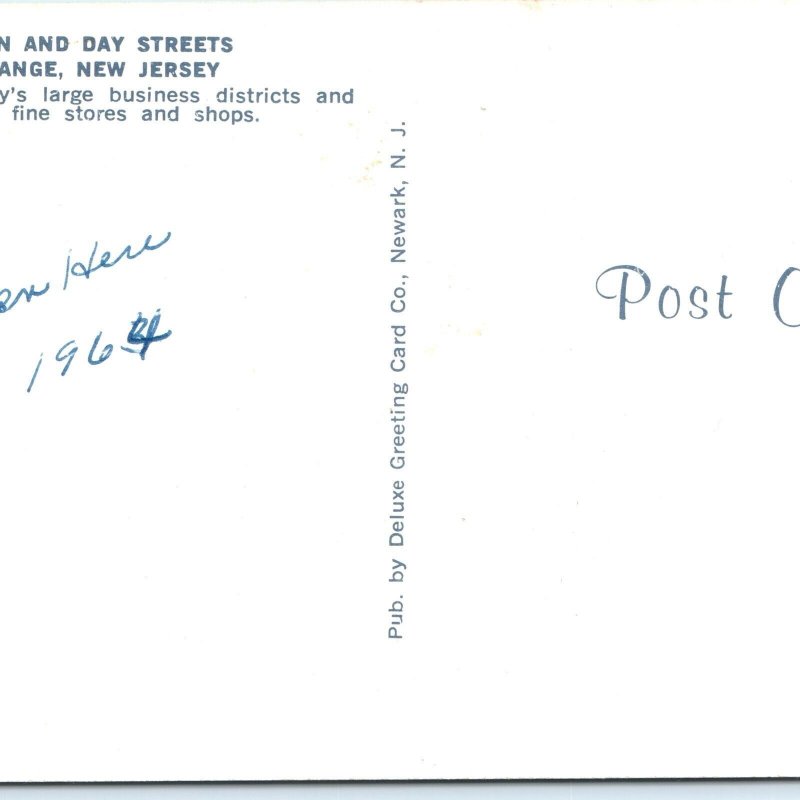 N AND DAY STREETS
ANGE, NEW JERSEY
y's large business districts and
fine stores and shops.
Here
1964
Pub. by Deluxe Greeting Card Co., Newark, N. J.
Post C